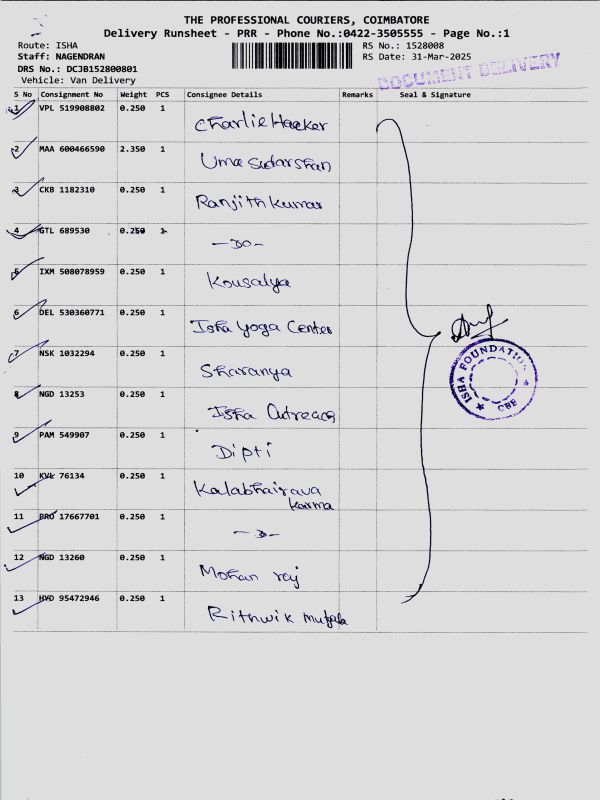 THE PROFESSIONAL COURIERS, COIMBATORE
Delivery Runsheet - PRR - Phone No.:0422-3505555 - Page No.:1
Route: ISHA
RS No.: 1528008
Staff: NAGENDRAN
RS Date: 31-Mar-2025
DRS No.: DCJB152800801
Vehicle: Van Delivery
DOCUMENT DELIVERY
S No Consignment No Weight PCS Consignee Details Remarks Seal & Signature
1 VPL 519908802 0.250 1 Charlie Hacker
2 MAA 600466590 2.350 1 Uma Sudarshan
3 CKB 1182310 0.250 1 Ranjith Kumar
4 GTL 689530 0.250 1 -do-
5 IXM 508078959 0.250 1 Kousalya
6 DEL 530360771 0.250 1 Isha Yoga Center
7 NSK 1032294 0.250 1 Sharanya
8 NGD 13253 0.250 1 Isha Outreach
9 PAM 549907 0.250 1 Dipti
10 KVL 76134 0.250 1 Kalabhairava
Karma
11 PRO 17667701 0.250 1
12 NGD 13260 0.250 1 Mohan raj
13 HYD 95472946 0.250 1 Rithwik
ISHA FOUNDATION
CBE